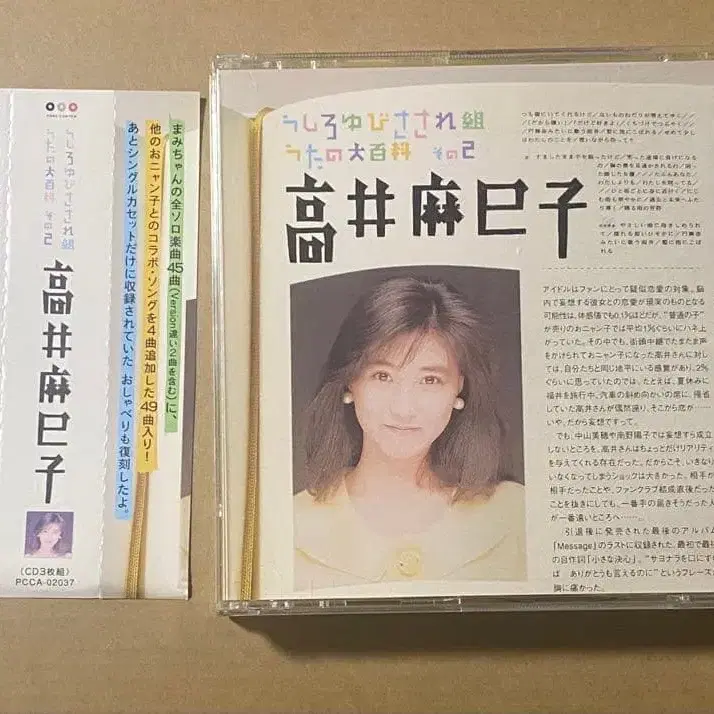 うしろゆびさされ組
うたの大百科 その2
高井麻巳子
(CD3枚組)
PCCA-02037
まみちゃんの全ソロ楽曲45曲(Version違い2曲を含む)に、
他のおニャン子とのコラボ・ソングを4曲追加した49曲入り!
あとシングルカセットだけに収録されていた おしゃべりも復刻したよ。
うしろゆびさされ組
うたの大百科 その2
高井麻巳子
アイドルはファンにとって疑似恋愛の対象。脳
内で妄想する彼女との恋愛が現実のものとなる
可能性は、体感値でも0.1%ほどだが、“普通の子”
が売りのおニャン子では平均1%ぐらいにハネ上
がっていた。その中でも、街頭中継でたまたま声
をかけられておニャン子になった高井さんに対し
ては、自分たちと同じ地平にいる感覚があり、2%
ぐらいに思っていたのでは。たとえば、夏休みに
福井を旅行中、汽車の斜め向かいの席に、帰省
していた高井さんが偶然座り、そこから恋が……
いや、だから妄想ですって。
でも、中山美穂や南野陽子では妄想すら成立
しないところを、高井さんはちょっとだけリアリティ
を与えてくれる存在だった。だからこそ、いきなり
いなくなってしまうショックは大きかった。相手が
相手だったことや、ファンクラブ結成直後だった
ことを抜きにしても、一番手の届きそうだった人
が一番遠いところへ……。
引退後に発売された最後のアルバム
「Message」のラストに収録された、最初で最
の自作詞「小さな決心」。“サヨナラを口にす
ば ありがとうも言えるのに”というフレーズ
胸に痛かった。